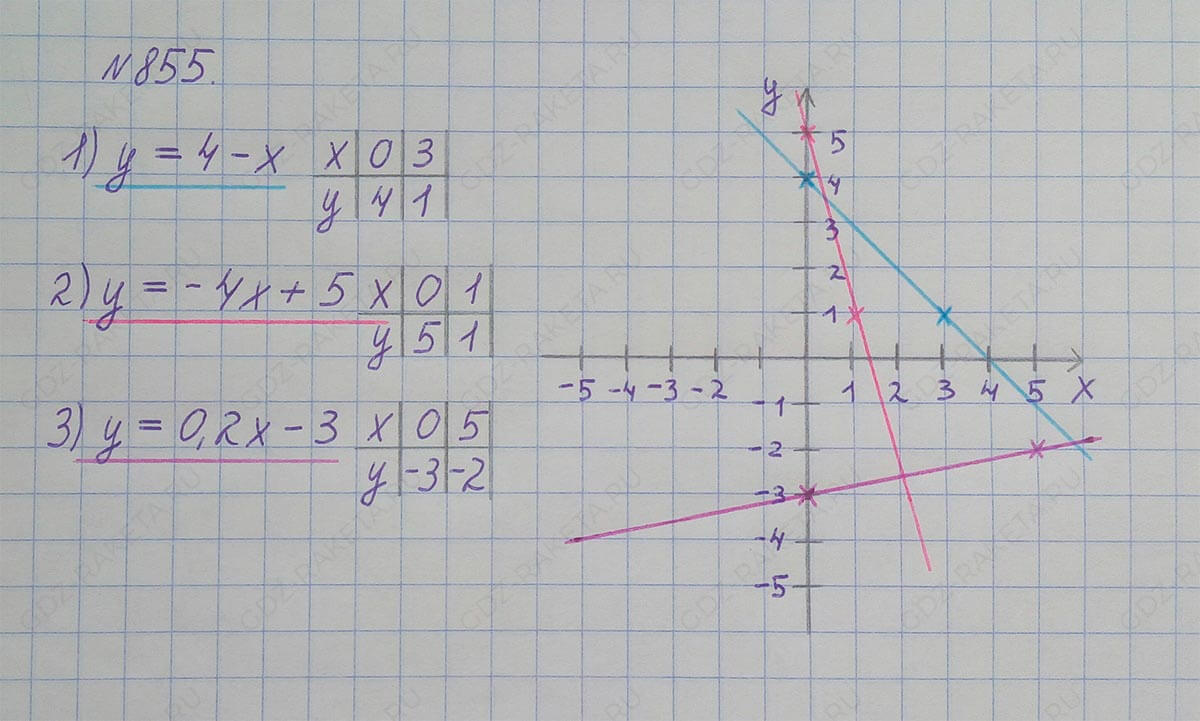 №855.
1) y = 4 - x
x 0 3
y 4 1
2) y = -4x + 5
x 0 1
y 5 1
3) y = 0,2x - 3
x 0 5
y -3 -2
y
5
4
3
2
1
-5 -4 -3 -2 1 2 3 4 5 x
-1
-2
-3
-4
-5
GDZ-RAKETA.RU